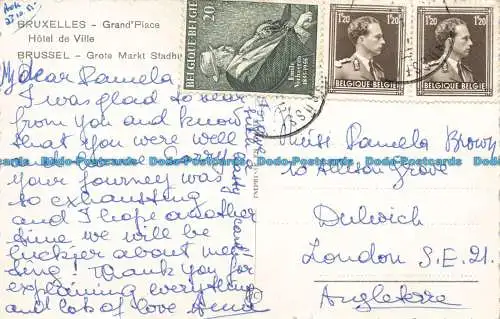 BRUXELLES - Grand'Place
Hôtel de Ville
BRUSSEL - Grote Markt Stadhu
My dear Pamela
I was glad to hear
from you and know
that you were well
and
your journey was
so exhausting
and I hope another
time we will be
luckier about mee-
ting! Thank you for
explaining everything
and lots of love Anna
BELGIQUE·BELGIE
20
Emile
Verhaeren
1855-1916
1F20
1F20
BELGIQUE·BELGIE
1F20
1F20
BELGIQUE·BELGIE
Miss Pamela Brown
10 Allison Grove
Dulwich
London S.E.21.
Angleterre
Dodo-Postcards
Dodo-Postcards
Dodo-Postcards
Dodo-Postcards
Dodo-Postcards
Dodo-Postcards